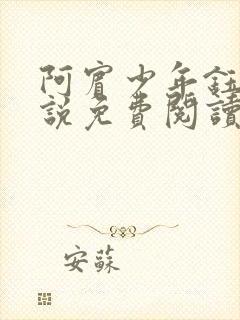 阿賓少年鈺
說免費閱讀
安蘇